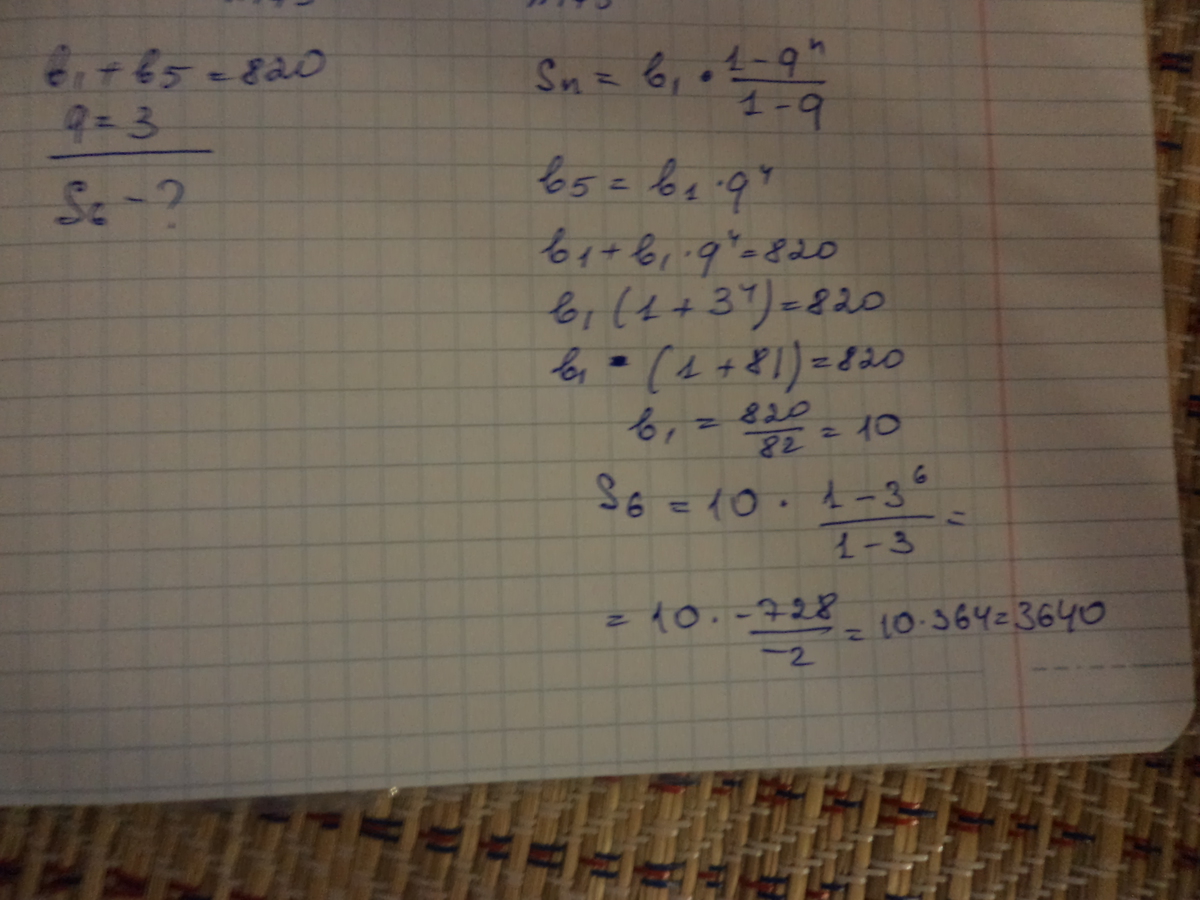 b₁ + b5 = 820
q = 3
S₆ - ?
Sn = b₁ · (1 - qⁿ)/(1 - q)
b5 = b1 · q⁴
b1 + b₁ · q⁴ = 820
b₁ (1 + 3⁴) = 820
b₁ · (1 + 81) = 820
b₁ = 820/82 = 10
S6 = 10 · (1 - 3⁶)/(1 - 3) =
= 10 · -728/-2 = 10 · 364 = 3640